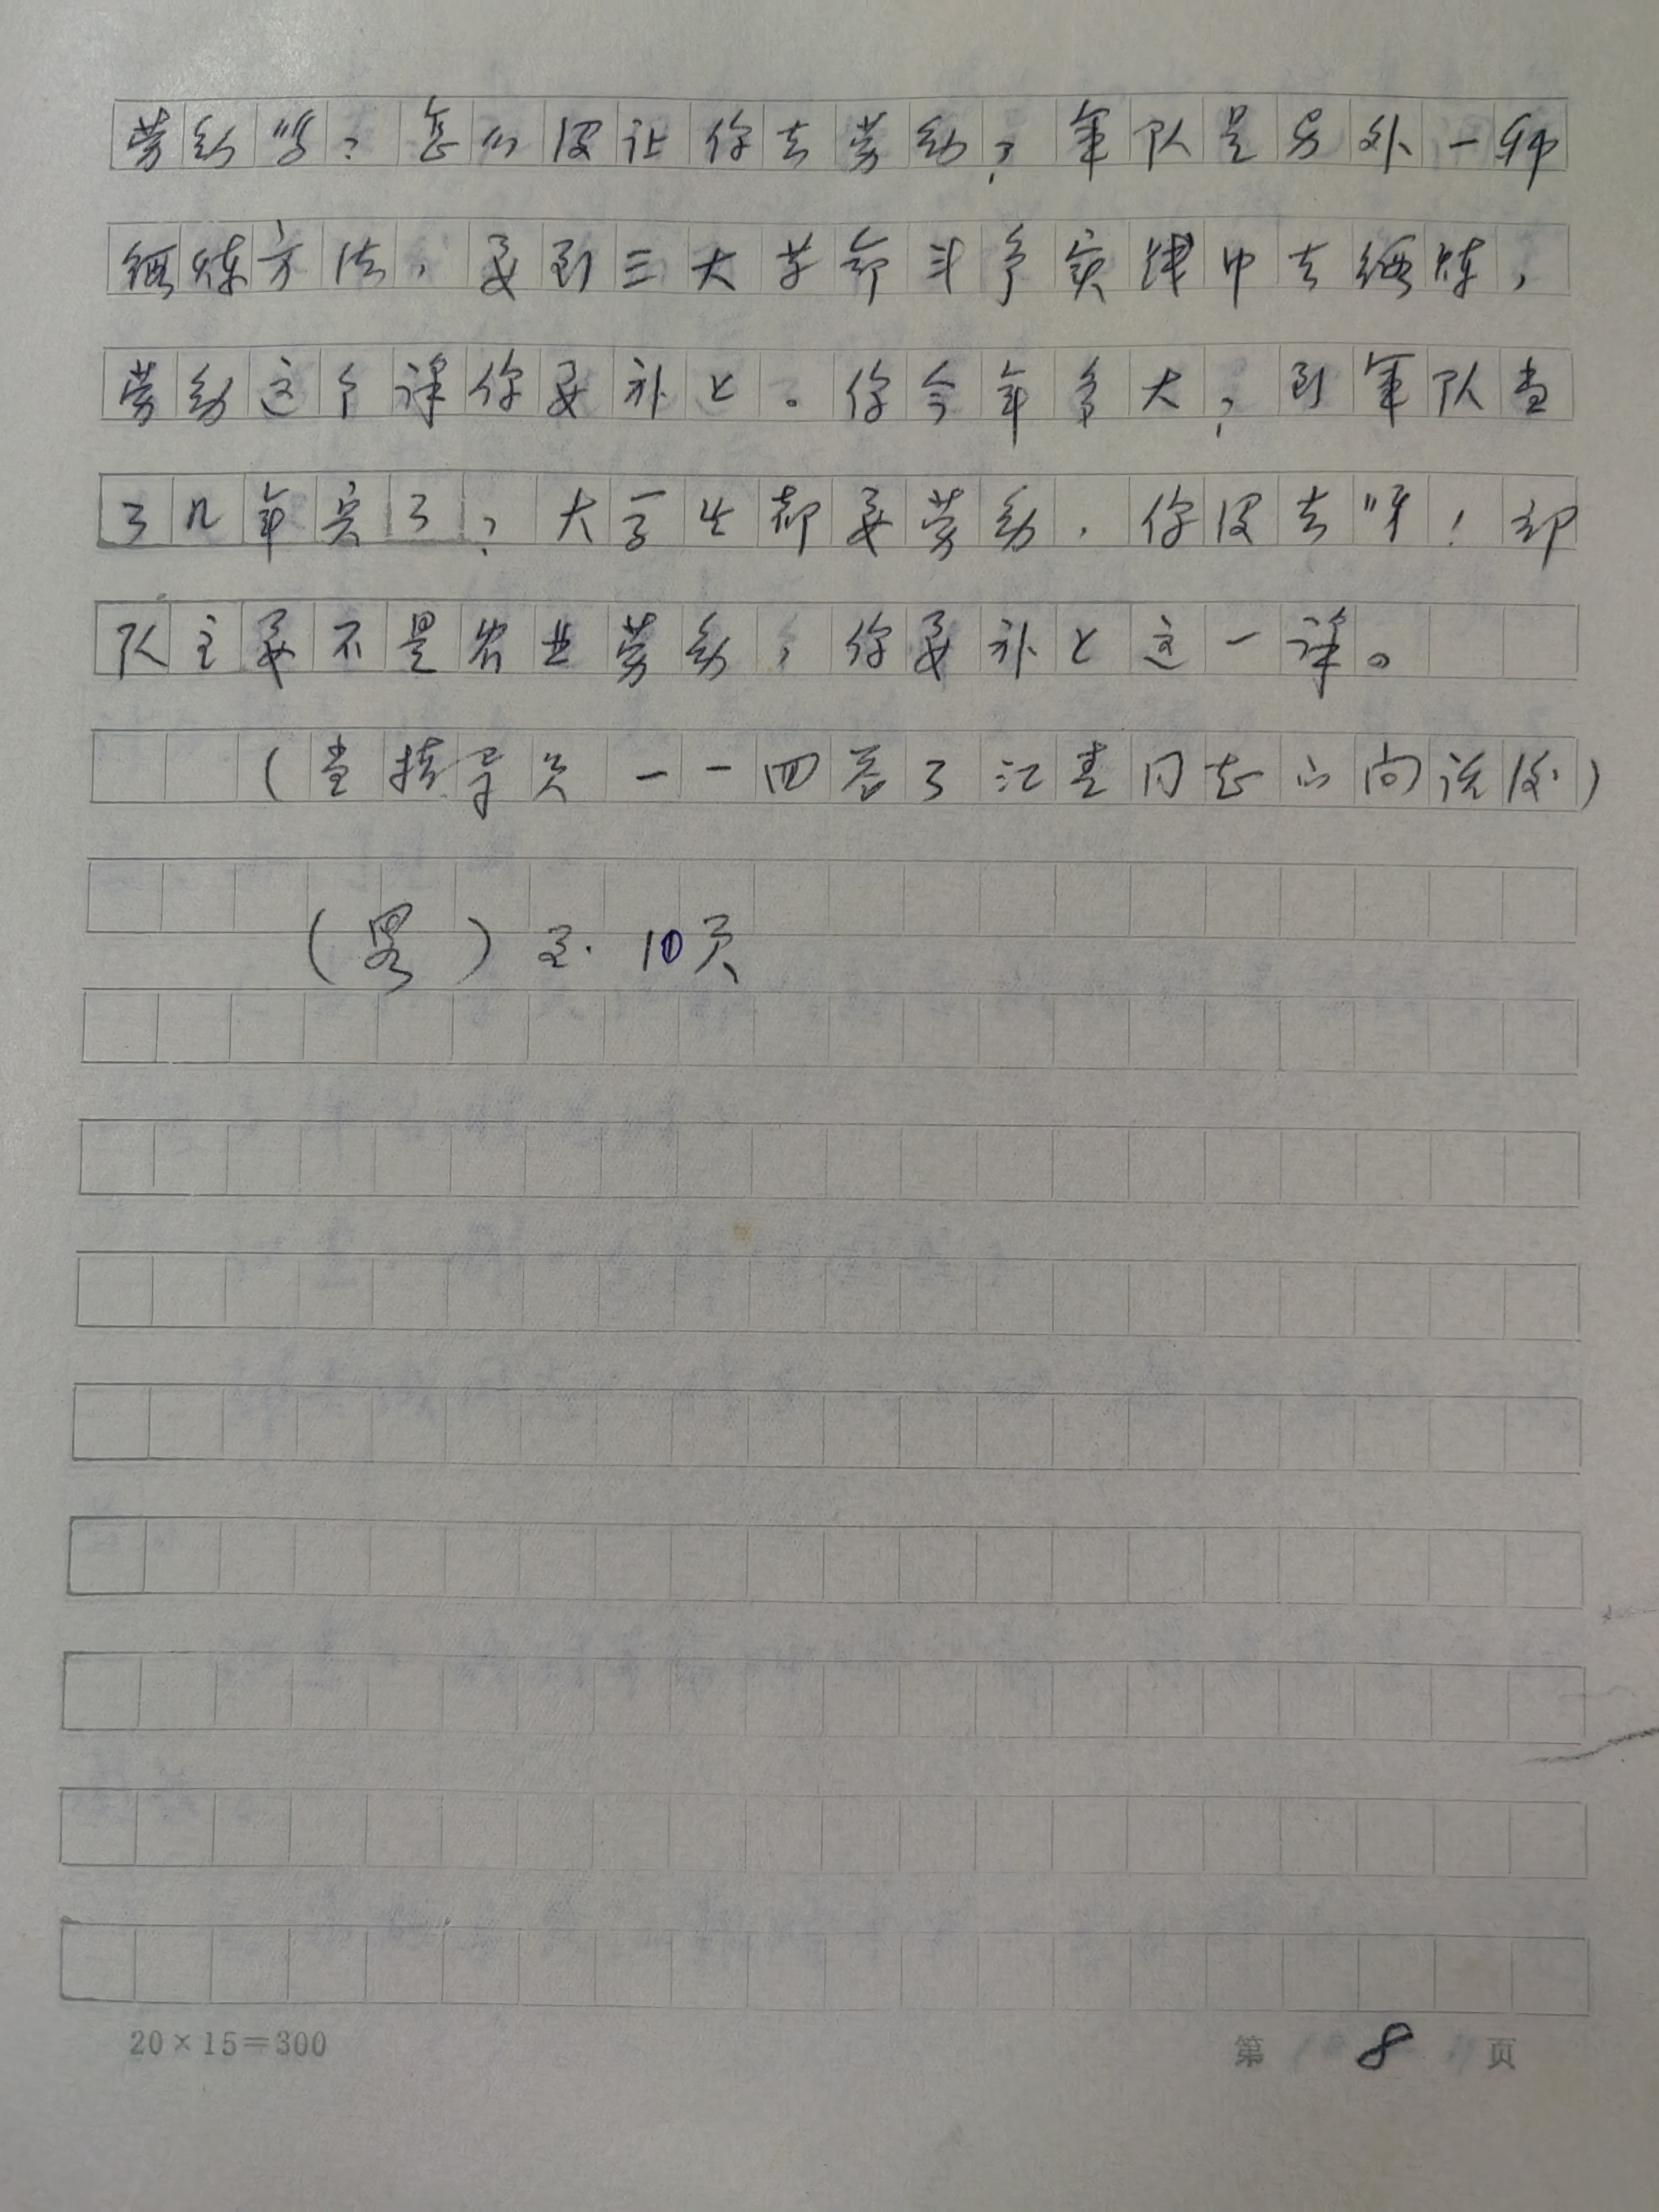 劳动吗？怎么没让你去劳动？军队是另外一种
锻炼方法，要到三大革命斗争实践中去锻炼，
劳动这个课你要补上。你今年多大？到军队当
了几年兵了？大学生都要劳动，你没去呀！部
队主要不是农业劳动，你要补上这一课。
（当指导员一一回答了江青同志的问话后）
（略）至·10页
20×15=300
第 8 页